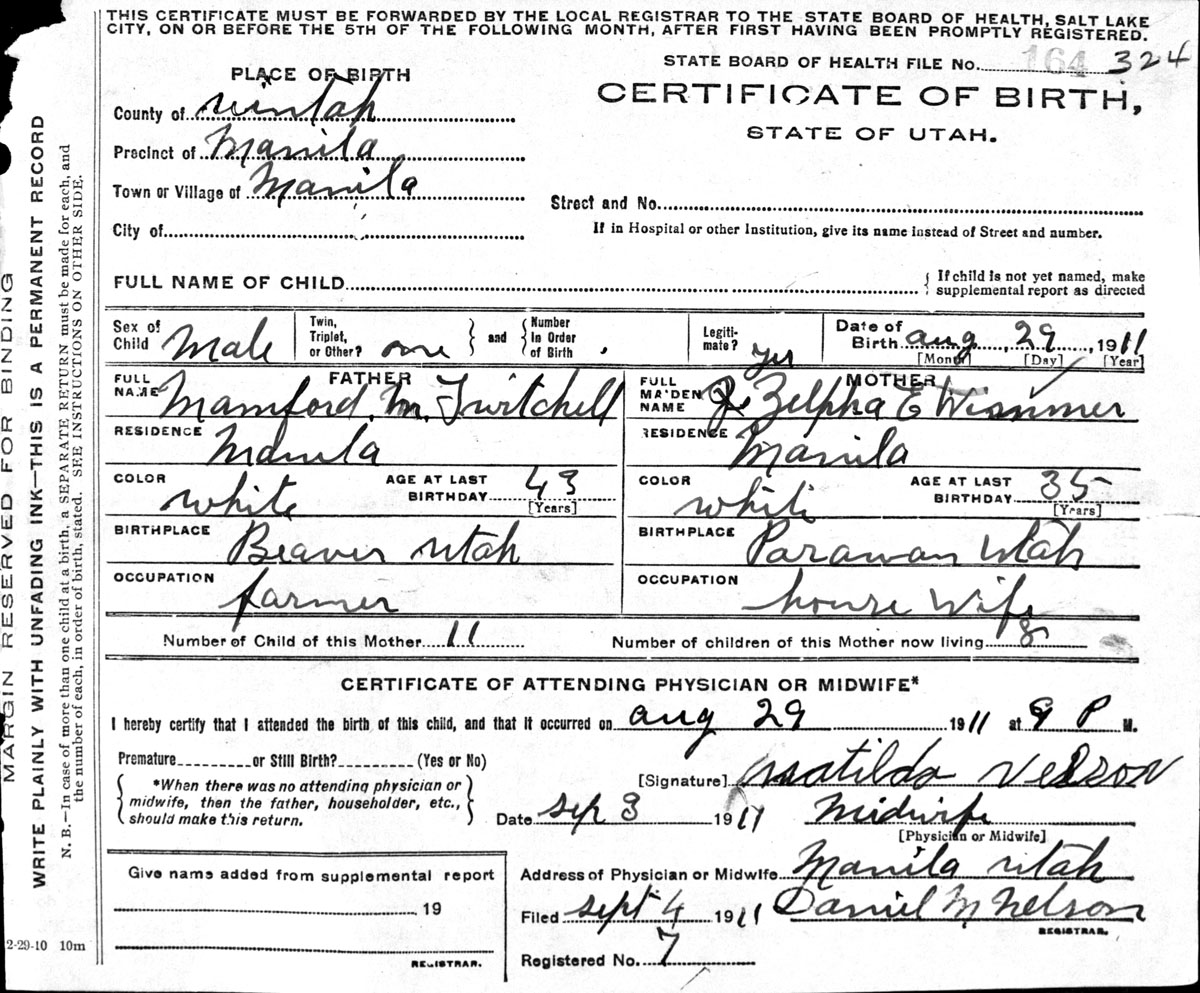 THIS CERTIFICATE MUST BE FORWARDED BY THE LOCAL REGISTRAR TO THE STATE BOARD OF HEALTH, SALT LAKE
CITY, ON OR BEFORE THE 5TH OF THE FOLLOWING MONTH, AFTER FIRST HAVING BEEN PROMPTLY REGISTERED.
STATE BOARD OF HEALTH FILE No. 164 324
PLACE OF BIRTH
CERTIFICATE OF BIRTH,
STATE OF UTAH.
County of uintah
Precinct of Manila
Town or Village of Manila
Street and No.
City of
If in Hospital or other Institution, give its name instead of Street and number.
FULL NAME OF CHILD
{ If child is not yet named, make
supplemental report as directed
Sex of Child Male
Twin, Triplet, or Other? one } and { Number In Order of Birth
Legiti-mate? yes
Date of Birth aug, 29, 1911
[Month] [Day] [Year]
FATHER
FULL NAME Mamford M. Twitchell
RESIDENCE Manila
COLOR white AGE AT LAST BIRTHDAY 43
[Years]
BIRTHPLACE Beaver utah
OCCUPATION farmer
MOTHER
FULL MAIDEN NAME Zelpha E Wimmer
RESIDENCE Manila
COLOR white AGE AT LAST BIRTHDAY 35
[Years]
BIRTHPLACE Parawan utah
OCCUPATION house Wife
Number of Child of this Mother 11 Number of children of this Mother now living 8
CERTIFICATE OF ATTENDING PHYSICIAN OR MIDWIFE*
I hereby certify that I attended the birth of this child, and that it occurred on aug 29 1911 at 9 P M.
Premature or Still Birth? (Yes or No)
{ *When there was no attending physician or
midwife, then the father, householder, etc.,
should make this return. }
[Signature] Matilda Nelson
Date sep 3 1911 Midwife
[Physician or Midwife]
Give name added from supplemental report
19
REGISTRAR.
Address of Physician or Midwife Manila utah
Filed sept 4 1911 Daniel M Nelson
REGISTRAR.
Registered No. 7
2-29-10 10m
MARGIN RESERVED FOR BINDING
WRITE PLAINLY WITH UNFADING INK—THIS IS A PERMANENT RECORD
N. B.—In case of more than one child at a birth, a SEPARATE RETURN must be made for each, and
the number of each, in order of birth, stated. SEE INSTRUCTIONS ON OTHER SIDE.